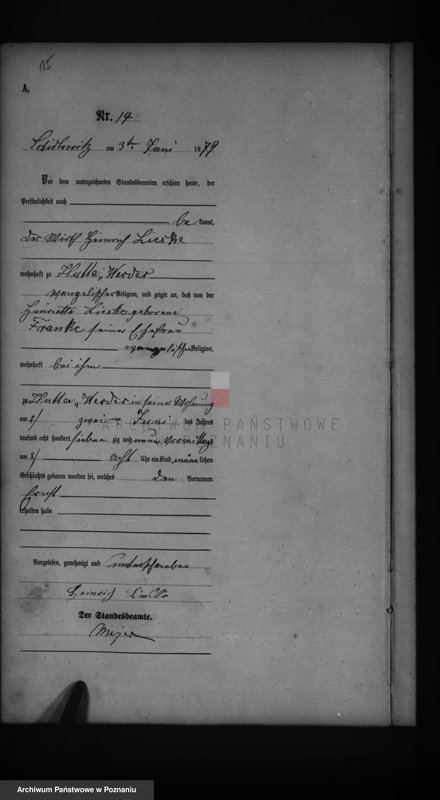 15
A.
Nr. 14
am 3ten Juni 1879
Vor dem unterzeichneten Standesbeamten erschien heute, der
Persönlichkeit nach
be kannt,
der Wirth Heinrich Lieske
wohnhaft zu Hutta Werder
evangelischer Religion, und zeigte an, daß von der
Henriette Lieske geborene
Franke seiner Ehefrau
evangelischer Religion,
wohnhaft bei ihm
zu Hutta Werder in seiner Wohnung
am zwei Juni des Jahres
tausend acht hundert sieben zig und neun Vormittags
um acht Uhr ein Kind männ lichen
Geschlechts geboren worden sei, welches den Vornamen
Ernst
erhalten habe
Vorgelesen, genehmigt und unterschrieben
Heinrich Lieske
Der Standesbeamte.
Meyer
ARCHIWUM PAŃSTWOWE
W POZNANIU
Archiwum Państwowe w Poznaniu